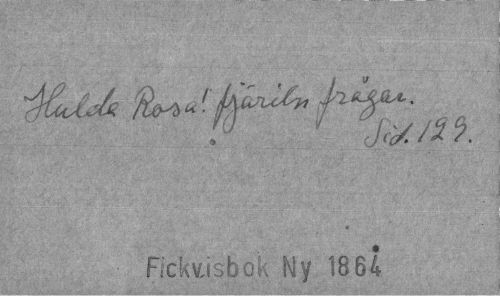 Hulda Rosa! fjäriln frågar.
Sid. 129.
Fickvisbok Ny 1864